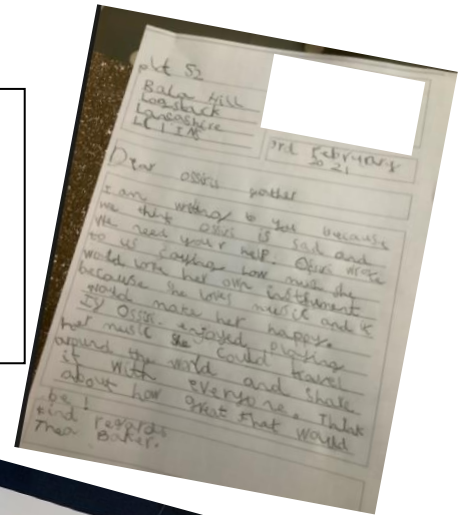 Plot 52
Bala Hill
Lostock
Lancashire
3rd Februrary
2021
Dear ossiris mother
I am writing to you because
we think Osiris is sad and
We need your help. Osiris wrote
to us saying how much she
would love her own instrument
because she loves music and it
would make her happy.
If Ossiris enjoyed playing
her music she could travel
around the world and share
it with everyone. Think
about how great that would
be!
kind regards
Thea Baker.